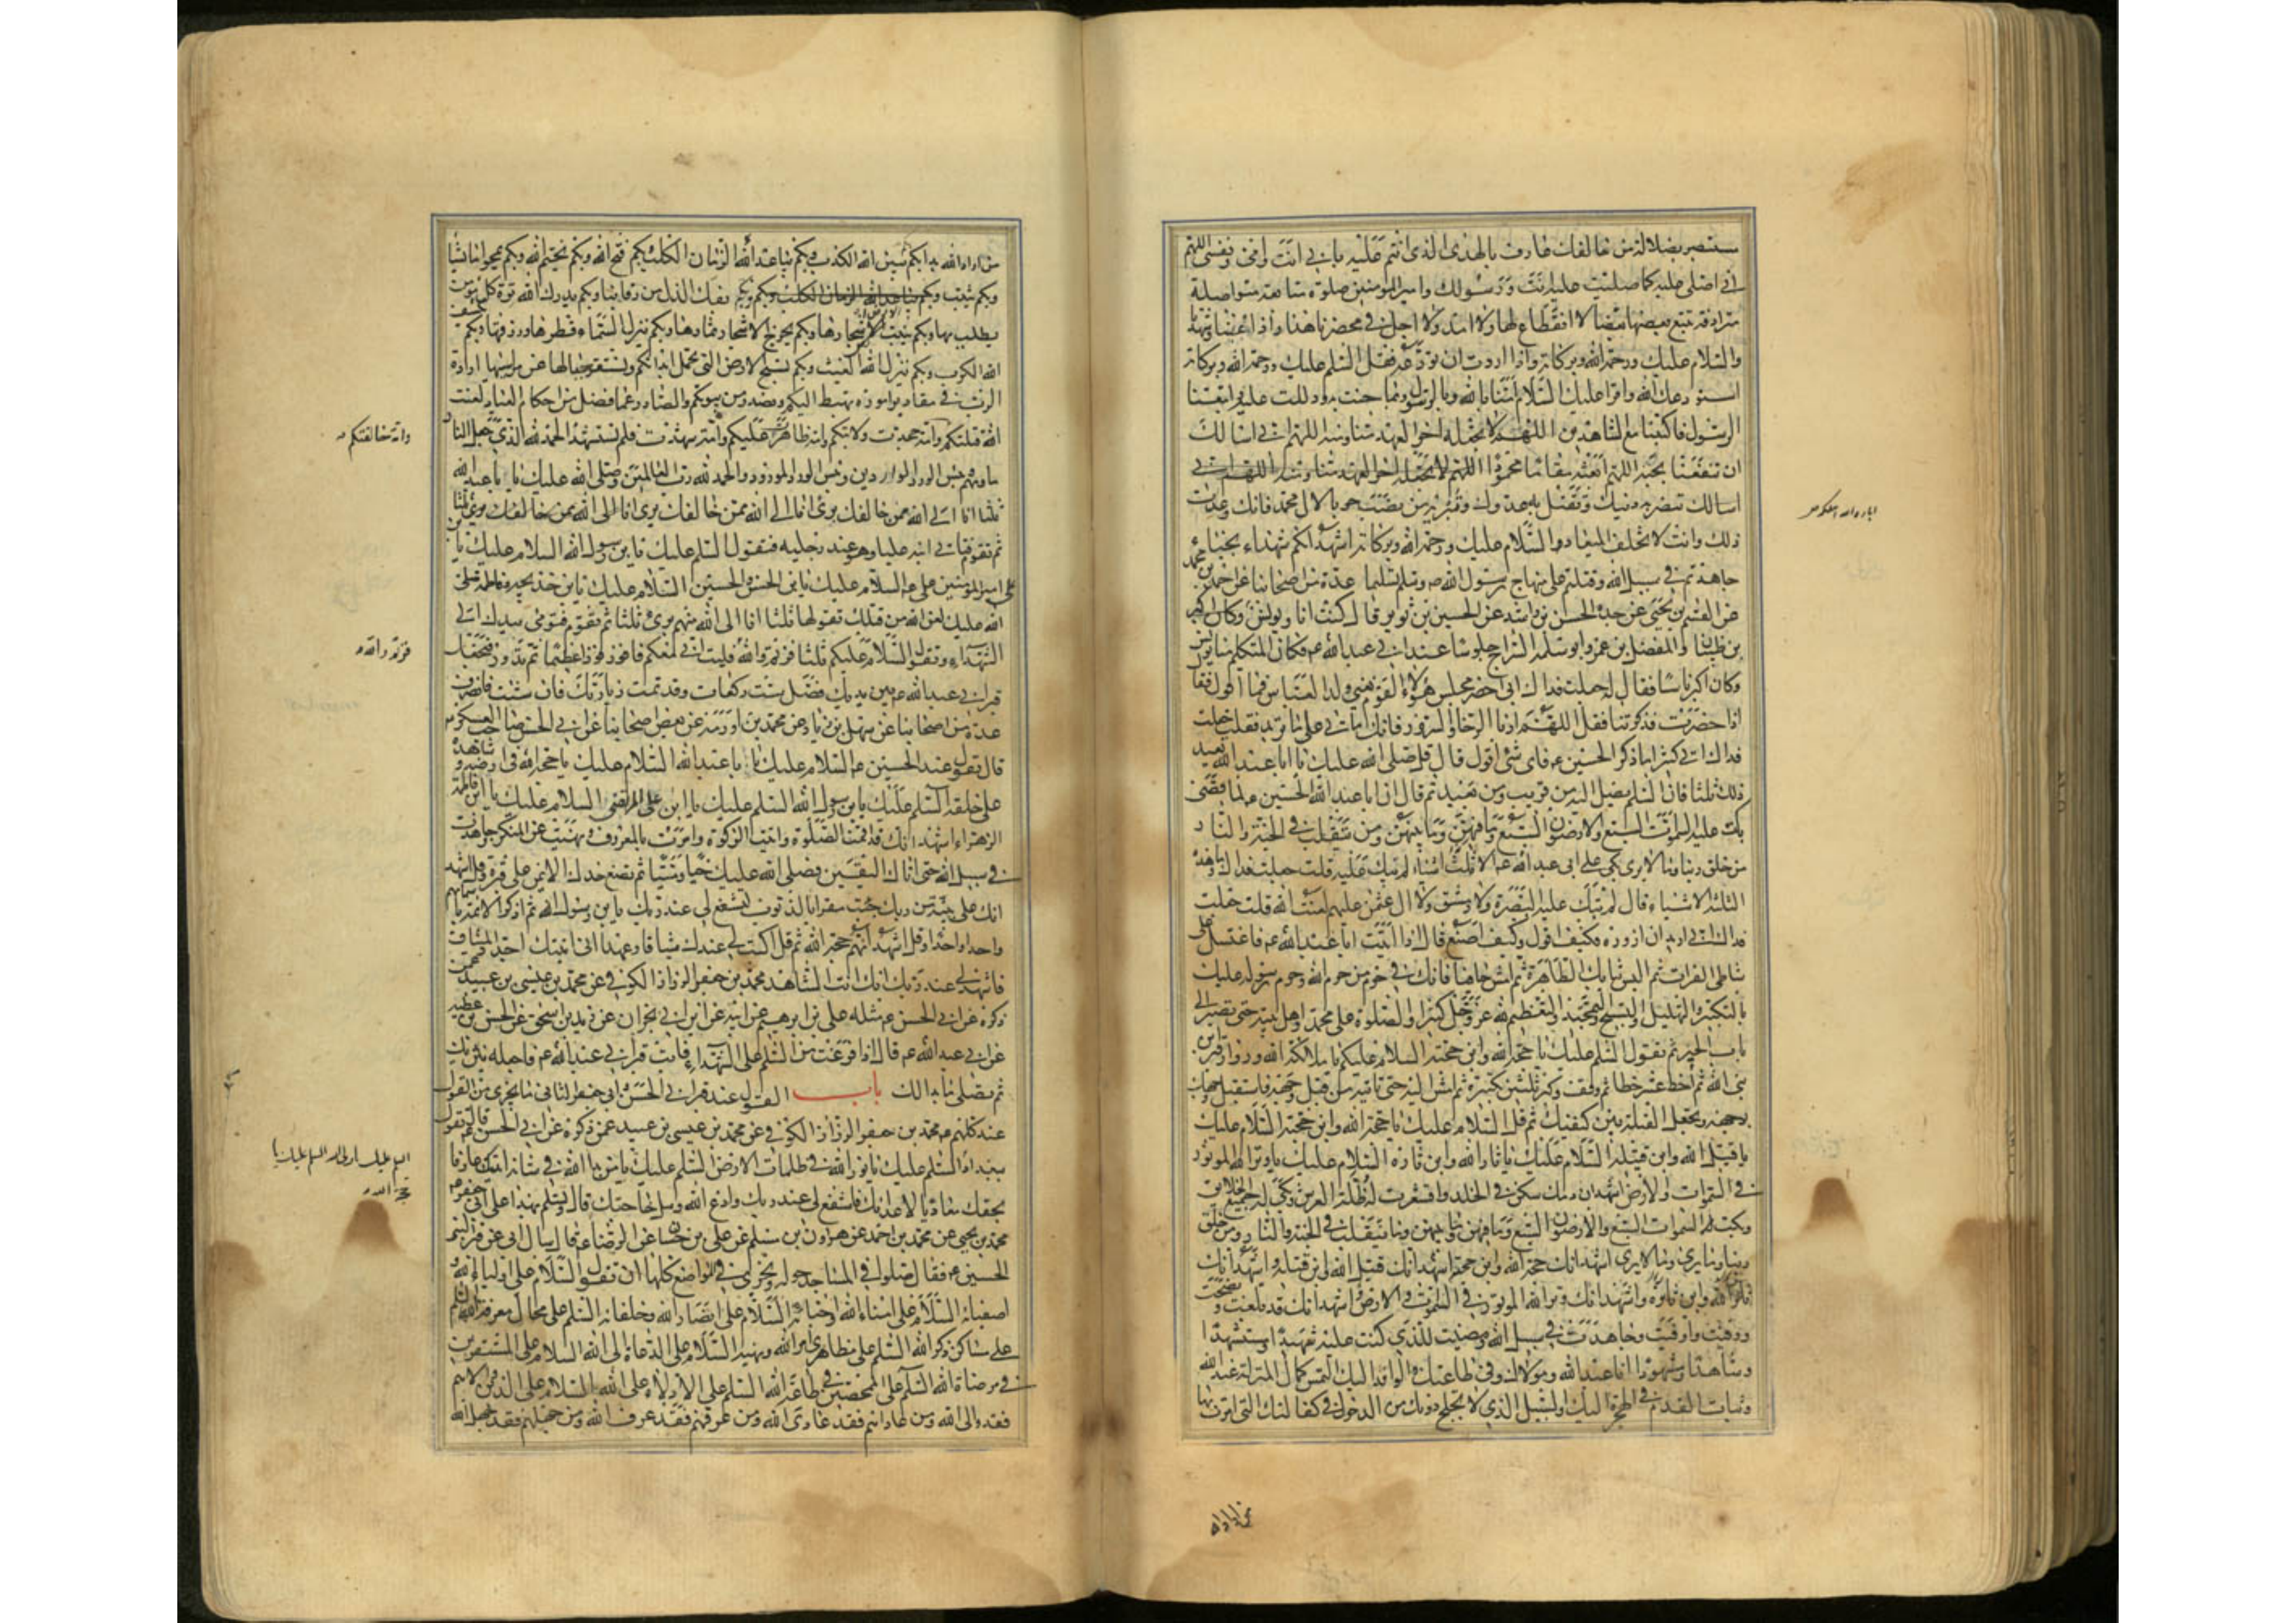 مستبصر بضلالة من خالفك عارف بالهدى الذى انتم عليه بابى انت وامى ونفسى اللهم
انى اصلى عليه كما صليت عليه انت ورسولك وامير المؤمنين صلوة متتابعة متواصلة
مترادفة تتبع بعضها بعضا لا انقطاع لها ولا امد ولا اجل فى محضرنا هذا واذا غبنا وشهدنا
والسلام عليك ورحمة الله وبركاته واذا اردت ان تودعه فقل السلم عليك ورحمة الله وبركاته
استودعك الله واقرا عليك السلام امنا بالله وبالرسول وبما جئت به ودللت عليه واتبعنا
الرسول فاكتبنا مع الشاهدين اللهم لا تجعله اخر العهد منا ومنه اللهم انى اسالك
ان تنفعنا بحبه اللهم ابعثه مقاما محمودا اللهم لا تجعله اخر العهد منا ومنه اللهم انى
اسالك تنصر به دينك وتقتل به عدوك وتبير به من نصب حربا لال محمد فانك وعدت
ذلك وانت لا تخلف الميعاد والسلام عليك ورحمة الله وبركاته اشهد انكم شهداء نجباء
جاهدتم فى سبيل الله وقتلتم على منهاج رسول الله ص وسلم تسليما عدة من اصحابنا عن احمد بن محمد
عن القسم بن يحيى عن جده الحسن بن راشد عن الحسين بن ثوير قال كنت انا ويونس
بن ظبيان والمفضل بن عمر وابو سلمة السراج جلوسا عند ابى عبد الله ع فكان المتكلم منا يونس
وكان اكبرنا سنا فقال له جعلت فداك انى احضر مجلس هؤلاء القوم يعنى ولد العباس فما اقول فقال
اذا حضرت فذكرتنا فقل اللهم ارنا الرخا والسرور فانك تاتى على ما تريد فقلت جعلت
فداك انى كثيرا ما اذكر الحسين ع فاى شى اقول قال قل صلى الله عليك يا ابا عبد الله تعيد
ذلك ثلثا فان السلم يصل اليه من قريب ومن بعيد ثم قال ان ابا عبد الله الحسين ع لما قضى
بكت عليه السموت السبع والارضون السبع وما فيهن وما بينهن ومن يتقلب فى الجنة والنار
من خلق ربنا وما لا يرى بكى على ابى عبد الله ع الا ثلثة اشياء لم تبك عليه قلت جعلت فداك وما هذه
الثلثة الاشياء قال لم تبك عليه البصرة ولا دمشق ولا ال عثمن عليهم لعنة الله قلت جعلت
فداك انى اريد ان ازوره فكيف اقول وكيف اصنع قال اذا اتيت ابا عبد الله ع فاغتسل على
شاطئ الفرات ثم البس ثيابك الطاهرة ثم امش حافيا فانك فى حرم من حرم الله وحرم رسوله عليك
بالتكبير والتهليل والتسبيح والتحميد والتعظيم لله عز وجل كثيرا والصلوة على محمد واهل بيته حتى تصير الى
باب الحير ثم تقول السلم عليك يا حجة الله وابن حجته السلام عليكم يا ملائكة الله وزوار قبر ابن
نبى الله ثم اخط عشر خطا ثم وقف وكبر ثلثين تكبيرة ثم امش اليه حتى تاتيه من قبل وجهه فاستقبل وجهك
بوجهه وتجعل القبلة بين كتفيك ثم قل السلام عليك يا حجة الله وابن حجته السلام عليك
يا قتيل الله وابن قتيله السلام عليك يا ثار الله وابن ثاره السلام عليك يا وتر الله الموتور
فى السموات والارض اشهد ان دمك سكن فى الخلد واقشعرت له اظلة العرش وبكى له جميع الخلايق
وبكت له السموات السبع والارضون السبع وما فيهن وما بينهن وما يتقلب فى الجنة والنار ومن خلق
ربنا وما يرى وما لا يرى اشهد انك حجة الله وابن حجته اشهد انك قتيل الله وابن قتيله واشهد انك
ثار الله وابن ثاره واشهد انك وتر الله الموتور فى السموت والارض اشهد انك قد بلغت ونصحت
ووفيت واوفيت وجاهدت فى سبيل الله ومضيت للذى كنت عليه شهيدا ومستشهدا
وشاهدا ومشهودا انا عبد الله ومولاك وفى طاعتك والوافد اليك التمس كمال المنزلة عند الله
وثبات القدم فى الهجرة اليك والسبيل الذى لا يختلج دونك من الدخول فى كفالتك التى امرت بها
من اراد الله بدا بكم بكم يبين الله الكذب وبكم يباعد الله الزمان الكلب بكم فتح الله وبكم يختم الله وبكم يمحو ما يشاء
وبكم يثبت وبكم يباعد الله الزمان الكلب وبكم يفك الذل من رقابنا وبكم يدرك الله ترة كل مؤمن
يطلب بها وبكم تنبت الارض اشجارها وبكم يخرج الاشجار ثمارها وبكم تنزل السماء قطرها ورزقها وبكم يكشف
الله الكرب وبكم ينزل الله الغيث وبكم تسيخ الارض التى تحمل ابدانكم وتستقر جبالها عن مراسيها ارادة
الرب فى مقادير اموره تهبط اليكم وتصدر من بيوتكم والصادر عما فصل من احكام العباد لعنت
امة قتلتكم وامة جحدت ولايتكم وامة ظاهرت عليكم وامة شهدت فلم تستشهد الحمد لله الذى جعل النار
ماويهم وبئس الورد المورود والحمد لله رب العالمين وصلى الله عليك يا ابا عبد الله
ثلثا انا الى الله ممن خالفك برئ انا الى الله ممن خالفك برئ انا الى الله ممن خالفك برئ ثلثا
ثم تقوم فتاتى ابنه عليا وهو عند رجليه فتقول السلم عليك يا بن رسول الله السلام عليك يا بن
امير المؤمنين على ع السلام عليك يا بن الحسن والحسين السلام عليك يا بن خديجة وفاطمة صلى
الله عليك لعن الله من قتلك تقولها ثلثا انا الى الله منهم برئ ثلثا ثم تقوم فتومى بيدك الى
الشهداء وتقول السلام عليكم ثلثا فزتم والله فليت انى معكم فافوز فوزا عظيما ثم تدور فتجعل
قبر ابى عبد الله ع بين يديك فصل ست ركعات وقد تمت زيارتك فان شئت فانصرف
عدة من اصحابنا عن سهل بن زياد عن محمد بن اورمة عن بعض اصحابنا عن ابى الحسن صاحب العسكر
قال تقول عند الحسين ع السلام عليك يا ابا عبد الله السلام عليك يا حجة الله فى ارضه وشاهده
على خلقه السلم عليك يا بن رسول الله السلم عليك يا ابن على المرتضى السلام عليك يا ابن فاطمة
الزهراء اشهد انك قد اقمت الصلوة واتيت الزكوة وامرت بالمعروف ونهيت عن المنكر وجاهدت
فى سبيل الله حتى اتاك اليقين فصلى الله عليك حيا وميتا ثم تضع خدك الايمن على قبره وقل اشهد
انك على بينة من ربك جئت مقرا بالذنوب لتشفع لى عند ربك يا بن رسول الله ثم اذكر الائمة باسمائهم
واحدا واحدا وقل اشهد انهم حجة الله ثم قل اكتب لى عندك ميثاقا وعهدا انى اتيتك اجدد الميثاق
فاشهد لى عند ربك انك انت الشاهد محمد بن جعفر الرزاز الكوفى عن محمد بن عيسى بن عبيد عمن
ذكره عن ابى الحسن ع مثله على بن ابرهيم عن ابيه عن ابن ابى نجران عن يزيد بن اسحق عن الحسن بن عطيه
عن ابى عبد الله ع قال اذا فرغت من السلم على الشهداء فائت قبر ابى عبد الله ع فاجعله بين يديك
ثم تصلى ما بدا لك باب القول عند قبر ابى الحسن وابى جعفر الثانى وما يجزى من القول
عند كلهم ع محمد بن جعفر الرزاز الكوفى عن محمد بن عيسى بن عبيد عمن ذكره عن ابى الحسن قال تقول
ببغداد السلم عليك يا نور الله فى ظلمات الارض السلم عليك يا من بدا لله فى شانه اتيتك عارفا
بحقك معاديا لاعدائك فاشفع لى عند ربك وادع الله وسل حاجتك قال وتسلم بهذا على ابى جعفر ع
محمد بن يحيى عن محمد بن احمد عن هرون بن مسلم عن على بن حسان عن الرضا ع قال سئل ابى عن قبر
الحسين ع فقال صلوا فى المساجد حوله ويجزى فى المواضع كلها ان تقول السلام على اولياء الله و
اصفيائه السلام على امناء الله واحبائه السلام على انصار الله وخلفائه السلم على محال معرفة الله السلم
على مساكن ذكر الله السلم على مظاهرى امر الله ونهيه السلام على الدعاة الى الله السلام على المستقرين
فى مرضاة الله السلم على الممحصين فى طاعة الله السلم على الادلاء على الله السلام على الذين من والاهم
فقد والى الله ومن عاداهم فقد عادى الله ومن عرفهم فقد عرف الله ومن جهلهم فقد جهل الله
وامة خالفتكم
فزتم والله
السلم عليك يا ولى الله السلم عليك يا
حجة الله
من اراد الله